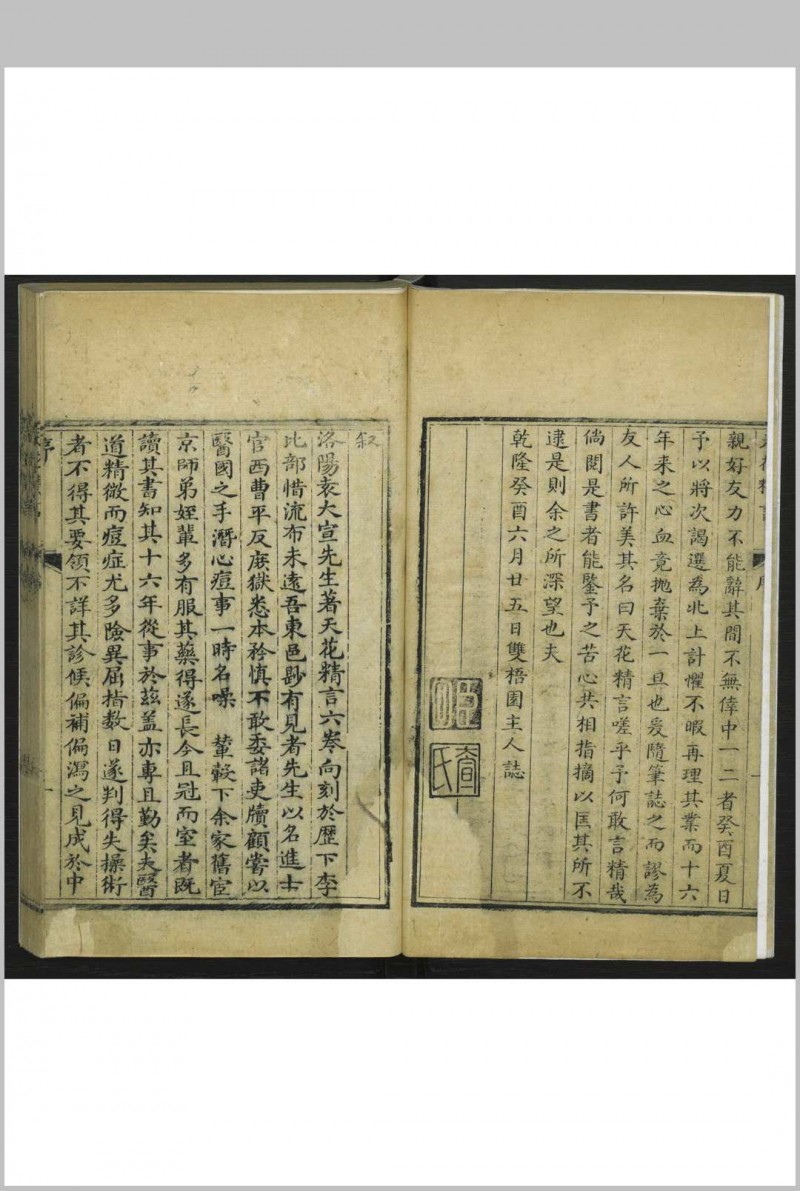 親好友力不能辭其間不無倖中一二者癸酉夏日
予以將次謁選為北上計懼不暇再理其業而十六
年来之心血竟抛棄於一旦也爰隨筆誌之而謬為
友人所許美其名曰天花精言嗟乎予何敢言精哉
倘閱是書者能鑒予之苦心共相指摘以匡其所不
逮是則余之所深望也夫
乾隆癸酉六月廿五日雙梧園主人誌
叙
洛陽袁大宣先生著天花精言六卷向刻於歷下李
比部惜流布未遠吾東邑尠有見者先生以名進士
官西曹平反庶獄悉本矜慎不敢委諸吏牘顧嘗以
醫國之手潛心痘事一時名噪　輦轂下余家舊宦
京師弟姪輩多有服其藥得遂長今且冠而室者既
讀其書知其十六年從事於茲盖亦專且勤矣夫醫
道精微而痘症尤多險異屈指数日遂判得失操術
者不得其要領不詳其診候偏補偏瀉之見成於中
序